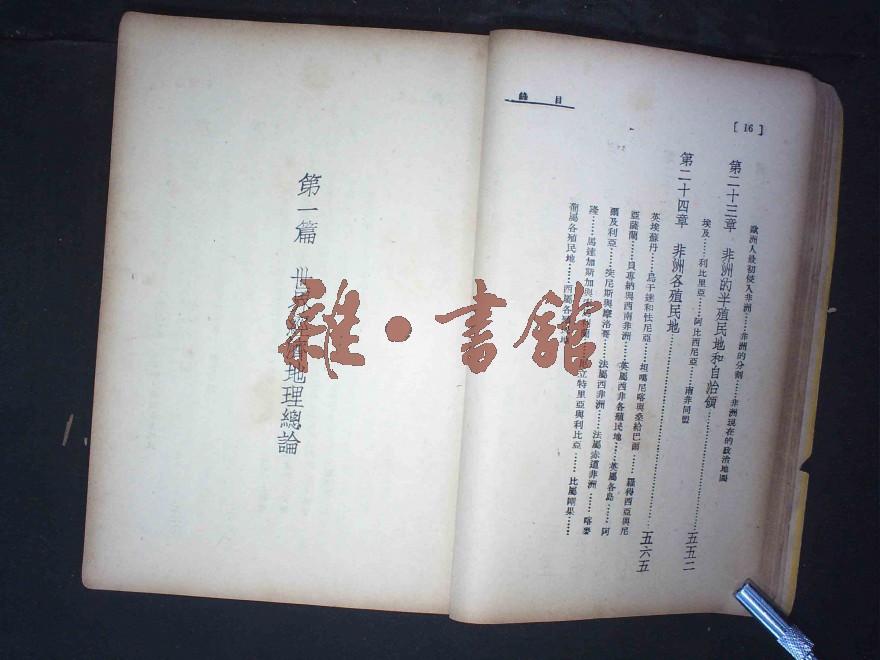 目 錄
[ 16 ]
歐洲人最初侵入非洲……非洲的分割……非洲現在的政治地圖
第二十三章 非洲的半殖民地和自治領……五五二
埃及……利比里亞……阿比西尼亞……南非同盟
第二十四章 非洲各殖民地……五六五
英埃蘇丹……烏干達和怯尼亞……坦噶尼喀與桑給巴爾……羅得西亞與尼
亞薩蘭……貝專納與西南非洲……英屬西非各殖民地……英屬各島……阿
爾及利亞……突尼斯與摩洛哥……法屬西非洲……法屬赤道非洲……喀麥
隆……馬達加斯加與……厄立特里亞與利比亞……比屬剛果……
葡屬各殖民地……西屬各殖民地
第一篇 世界經濟地理總論
雜·書館